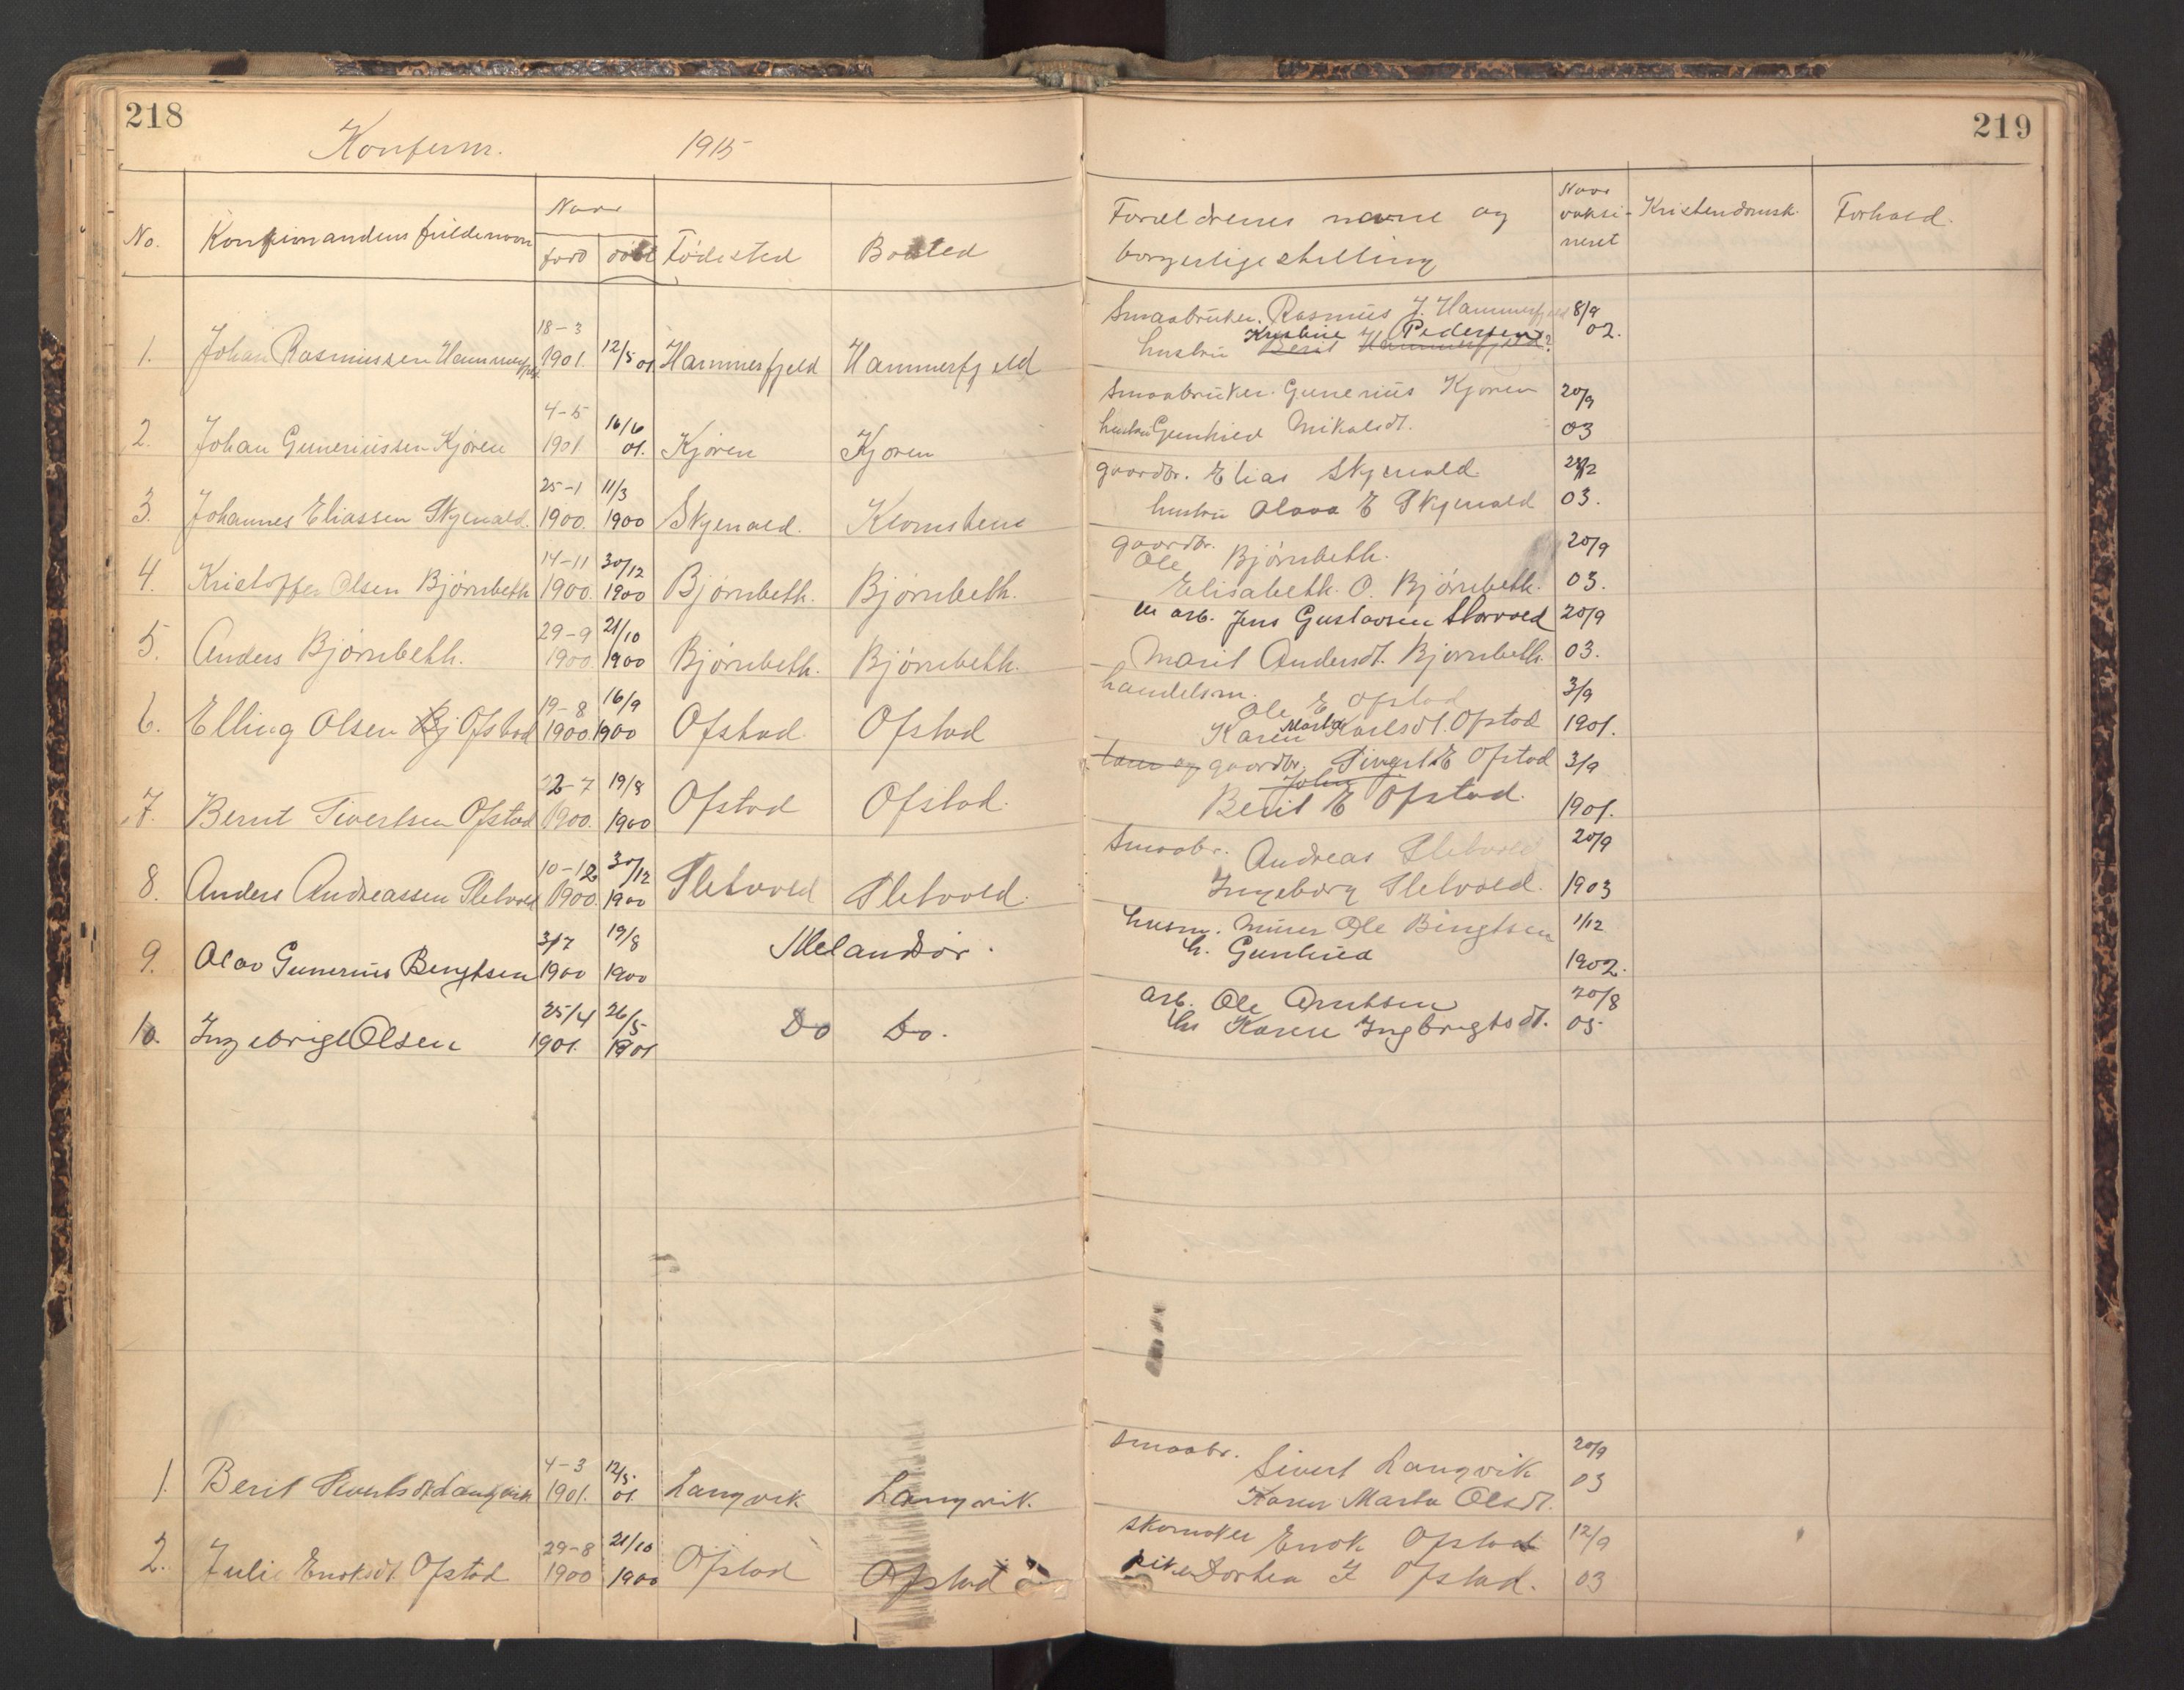 218
Konferm. 1915
No. Konfirmandens fulde navn Naar født døbt Fødested Bosted
1. Johan Rasmussen Hammerfjeld 18-3 1901. 12/5 01 Hammerfjeld Hammerfjeld
2. Johan Guneriussen Kjøren 4-5 1901 16/6 01. Kjøren Kjøren
3. Johannes Eliassen Skjenald. 25-1 1900. 11/3 1900 Skjenald. Klomstene
4. Kristoffer Olsen Bjørnbeth 14-11 1900. 30/12 1900 Bjørnbeth. Bjørnbeth.
5. Anders Bjørnbeth. 29-9 1900. 21/10 1900 Bjørnbeth. Bjørnbeth.
6. Elling Olsen Bj Ofstad 19-8 1900. 16/9 1900 Ofstad. Ofstad
7. Bernt Sivertsen Ofstad 22-7 1900. 19/8 1900 Ofstad Ofstad.
8. Anders Andreassen Sletvold 10-12 1900. 30/12 1900 Sletvold Sletvold.
9. Olav Gunerius Bengtsen 3/7 1900 19/8 1900 Melandsør.
10. Ingebrigt Olsen 25/4 1901. 26/5 1901 Do Do.
1. Berit Sivertsdt Langvik 4-3 1901. 12/5. 01. Langvik Langvik.
2. Julie Enoksdt. Ofstad 29-8 1900 21/10 1900 Ofstad Ofstad
219
Forældrenes navne og borgerlige stilling Naar vaksineret Kristendomsk. Forhold.
Smaabruker. Rasmus J. Hammerfjeld 8/9
Kristine H Pedersen
hustru Berit Hammerfjeld? 02.
Smaabruker. Gunerius Kjøren 20/9
hustru Gunhild Mikalsdt. 03
gaardbr. Elias Skjenald
hustru Olava E Skjenald 03.
gaardbr. 20/9
Ole Bjørnbeth.
Elisabeth. O. Bjørnbeth. 03.
u arb. Jens Gustavsen Storvold 20/9
Marit Andersdt. Bjørnbeth. 03.
handelsm. 3/9
Ole E Ofstad
Karen Marta Karlsdt. Ofstad 1901.
gaardbr. Sivert E Ofstad 3/9
John
Berit E Ofstad. 1901.
Smaabr. Andreas Sletvold 20/9
Ingeborg Sletvold. 1903
husm. Murer Ole Bingtsen 1/12
h. Gunhild 1902.
arb. Ole Arntsen 20/8
hu Karen Ingbrigtsdt. 05
smaabr. 20/9
Sivert Langvik 03
Karen Marta Olsdt.
skomaker Enok Ofstad 12/9
pike Dorthea I Ofstad. 03